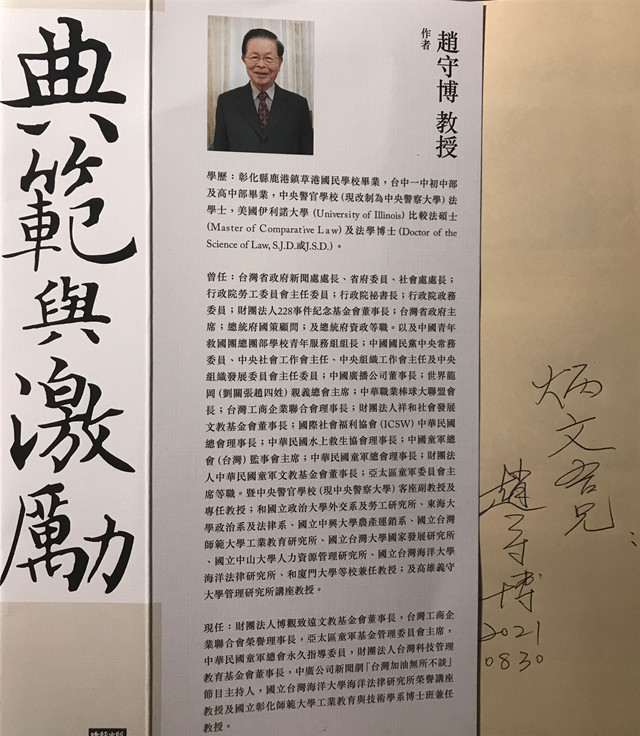 典範與激勵
趙守博 教授
作者
學歷：彰化縣鹿港鎮草港國民學校畢業，台中一中初中部
及高中部畢業，中央警官學校 (現改制為中央警察大學) 法
學士，美國伊利諾大學 (University of Illinois) 比較法碩士
(Master of Comparative Law) 及法學博士 (Doctor of the
Science of Law, S.J.D.或J.S.D.) 。
曾任：台灣省政府新聞處處長、省府委員、社會處處長；
行政院勞工委員會主任委員；行政院祕書長；行政院政務
委員；財團法人228事件紀念基金會董事長；台灣省政府主
席；總統府國策顧問；及總統府資政等職。以及中國青年
救國團總團部學校青年服務組組長；中國國民黨中央常務
委員、中央社會工作會主任、中央組織工作會主任及中央
組織發展委員會主任委員；中國廣播公司董事長；世界龍
岡 (劉關張趙四姓) 親義總會主席；中華職業棒球大聯盟會
長；台灣工商企業聯合會理事長；財團法人祥和社會發展
文教基金會董事長；國際社會福利協會 (ICSW) 中華民國
總會理事長；中華民國水上救生協會理事長；中國童軍總
會 (台灣) 監事會主席；中華民國童軍總會理事長；財團法
人中華民國童軍文教基金會董事長；亞太區童軍委員會主
席等職。暨中央警官學校 (現中央警察大學) 客座副教授及
專任教授；和國立政治大學外交系及勞工研究所、東海大
學政治系及法律系、國立中興大學農產運銷系、國立台灣
師範大學工業教育研究所、國立台灣大學國家發展研究所
、國立中山大學人力資源管理研究所、國立台灣海洋大學
海洋法律研究所、和廈門大學等校兼任教授；及高雄義守
大學管理研究所講座教授。
現任：財團法人博觀致遠文教基金會董事長，台灣工商企
業聯合會榮譽理事長，亞太區童軍基金管理委員會主席，
中華民國童軍總會永久指導委員，財團法人台灣科技管理
教育基金會董事長，中廣公司新聞網「台灣加油無所不談」
節目主持人，國立台灣海洋大學海洋法律研究所榮譽講座
教授及國立彰化師範大學工業教育與技術學系博士班兼任
教授。
炳文吾兄：
趙守博
2021
0830